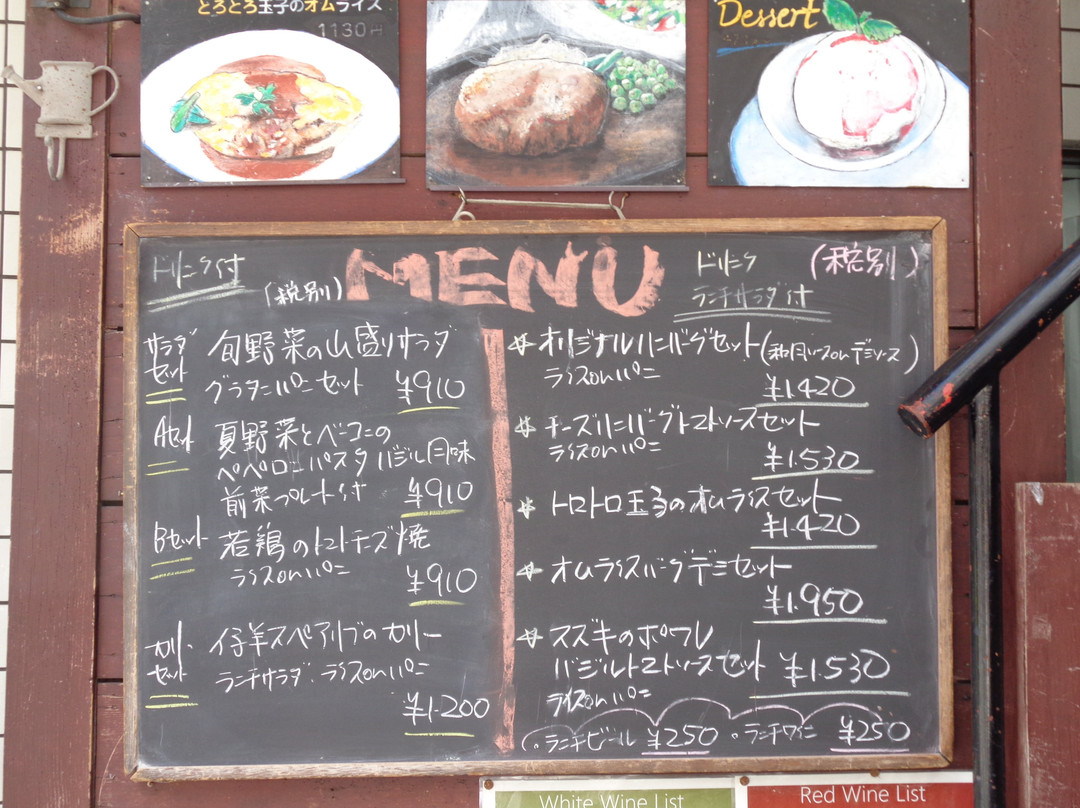 とろとろ玉子のオムライス
1130円
Dessert
MENU
ドリンク付
(税別)
サラダセット
旬野菜の山盛りサラダ
グラタンパンセット ¥910
Aセット
夏野菜とベーコンの
ペペロンパスタバジル風味
前菜プレート付 ¥910
Bセット
若鶏のトマトチーズ焼
ライスorパン
¥910
カリーセット
仔羊スペアリブのカリー
ランチサラダ・ライスorパン
¥1.200
ドリンク
ランチサラダ付
(税別)
オリジナルハンバーグセット(和風ソースorデミソース)
ライスorパン
¥1.420
チーズハンバーグトマトソースセット
ライスorパン
¥1.530
トロトロ玉子のオムライスセット
¥1.420
オムライスバーグデミセット
¥1.950
スズキのポワレ
バジルトマトソースセット ¥1.530
ライスorパン
・ランチビール ¥250 ・ランチワイン ¥250
White Wine List
Red Wine List